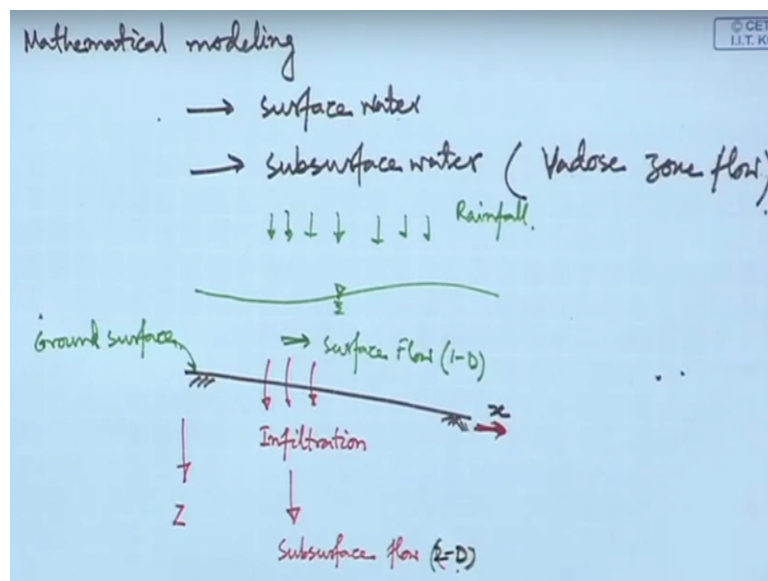 Mathematical modeling
© CET
I.I.T. K
→ surface water
→ subsurface water ( Vadose zone flow)
Rainfall.
Ground surface
→ Surface Flow (1-D)
x
Infiltration
Z
Subsurface flow (2-D)